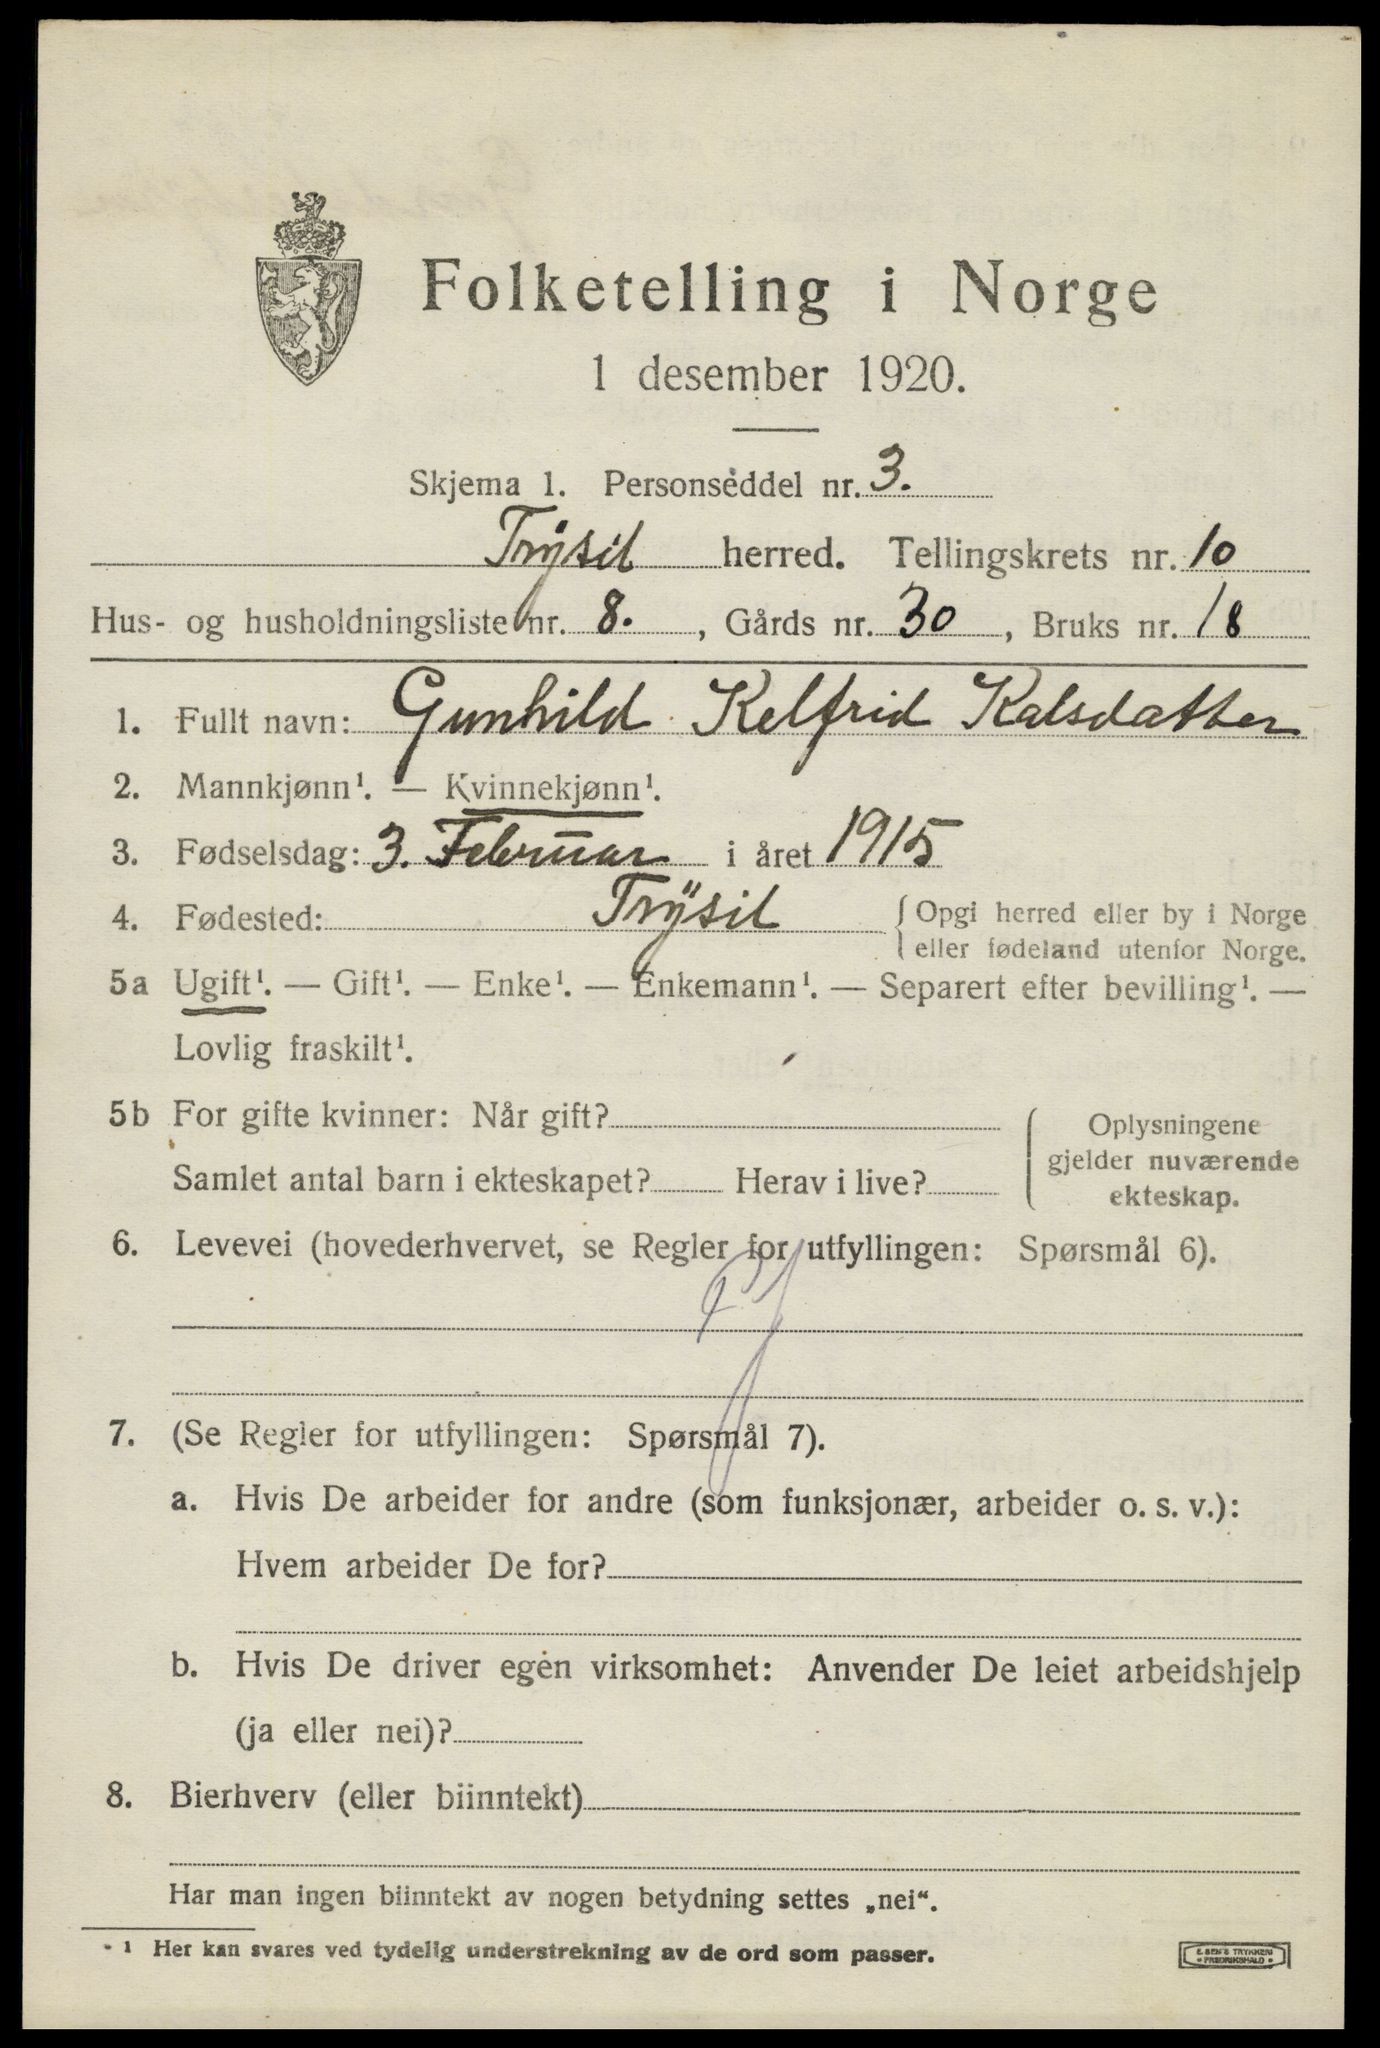 Folketelling i Norge
1 desember 1920.
Skjema 1. Personseddel nr. 3.
Trysil herred. Tellingskrets nr. 10
Hus- og husholdningsliste nr. 8. , Gårds nr. 30 , Bruks nr. 18
1. Fullt navn: Gunhild Kelfrid Kalsdatter
2. Mannkjønn¹. — Kvinnekjønn¹.
3. Fødselsdag: 3. Februar i året 1915
4. Fødested: Trysil { Opgi herred eller by i Norge
eller fødeland utenfor Norge.
5a Ugift¹. — Gift¹. — Enke¹. — Enkemann¹. — Separert efter bevilling¹. —
Lovlig fraskilt¹.
5b For gifte kvinner: Når gift?
Samlet antal barn i ekteskapet? Herav i live?
Oplysningene
gjelder nuværende
ekteskap.
6. Levevei (hovederhvervet, se Regler for utfyllingen: Spørsmål 6).
7. (Se Regler for utfyllingen: Spørsmål 7).
a. Hvis De arbeider for andre (som funksjonær, arbeider o. s. v.):
Hvem arbeider De for?
b. Hvis De driver egen virksomhet: Anvender De leiet arbeidshjelp
(ja eller nei)?
8. Bierhverv (eller biinntekt)
Har man ingen biinntekt av nogen betydning settes „nei“.
¹ Her kan svares ved tydelig understrekning av de ord som passer.
E. SEM'S TRYKKERI
FREDRIKSHALD